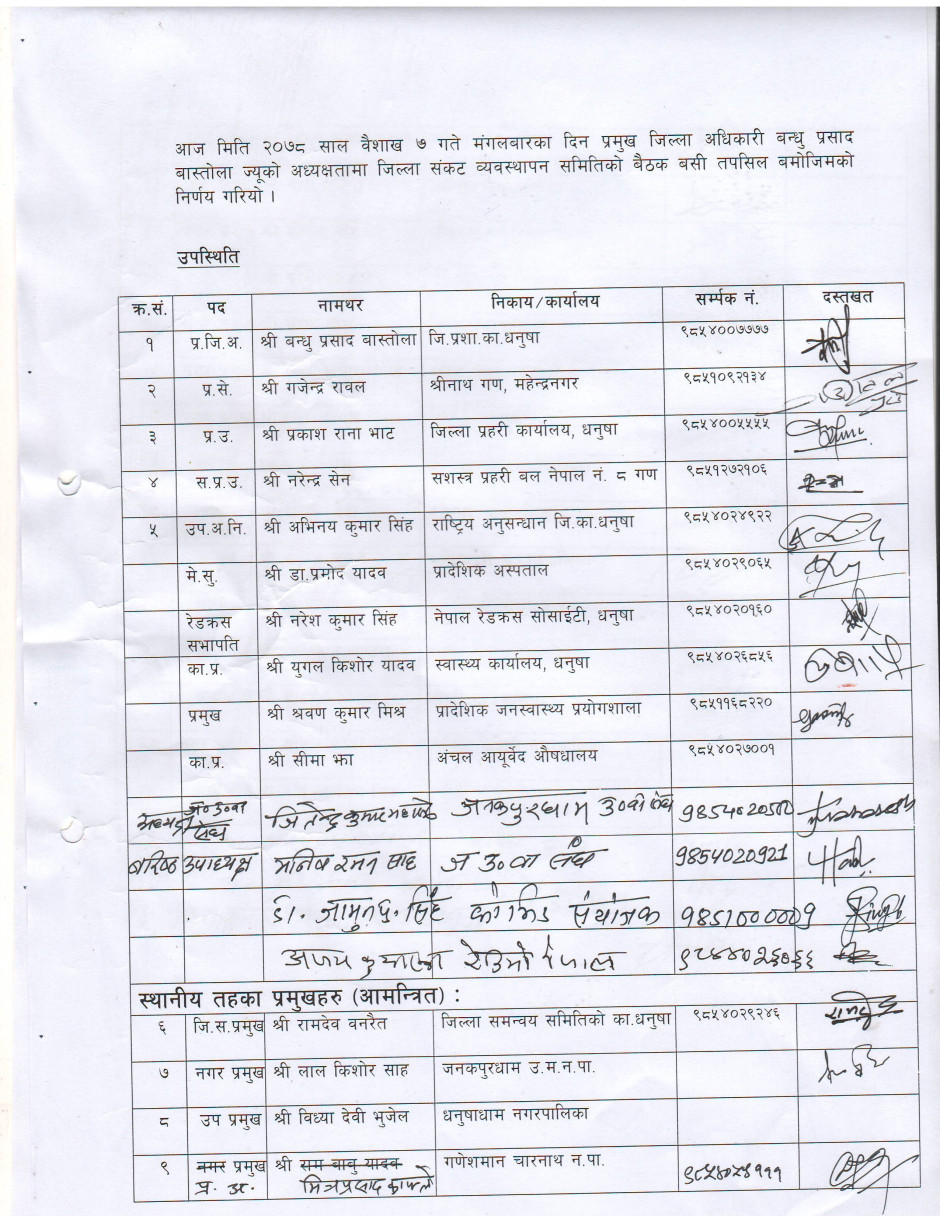 आज मिति २०७८ साल वैशाख ७ गते मंगलबारका दिन प्रमुख जिल्ला अधिकारी बन्धु प्रसाद
बास्तोला ज्यूको अध्यक्षतामा जिल्ला संकट व्यवस्थापन समितिको बैठक बसी तपसिल बमोजिमको
निर्णय गरियो ।
उपस्थिति
क्र.सं. पद नामथर निकाय/कार्यालय सर्म्पक नं. दस्तखत
१ प्र.जि.अ. श्री बन्धु प्रसाद बास्तोला जि.प्रशा.का.धनुषा ९८५४००७७७७
२ प्र.से. श्री गजेन्द्र रावल श्रीनाथ गण, महेन्द्रनगर ९८५१०९२१३४
३ प्र.उ. श्री प्रकाश राना भाट जिल्ला प्रहरी कार्यालय, धनुषा ९८५४००५५५५
४ स.प्र.उ. श्री नरेन्द्र सेन सशस्त्र प्रहरी बल नेपाल नं. ८ गण ९८५१२७२१०६
५ उप.अ.नि. श्री अभिनय कुमार सिंह राष्ट्रिय अनुसन्धान जि.का.धनुषा ९८५४०२४९२२
मे.सु. श्री डा.प्रमोद यादव प्रादेशिक अस्पताल ९८५४०२९०६५
रेडक्रस सभापति श्री नरेश कुमार सिंह नेपाल रेडक्रस सोसाईटी, धनुषा ९८५४०२०१६०
का.प्र. श्री युगल किशोर यादव स्वास्थ्य कार्यालय, धनुषा ९८५४०२६८५६
प्रमुख श्री श्रवण कुमार मिश्र प्रादेशिक जनस्वास्थ्य प्रयोगशाला ९८५११६८२२०
का.प्र. श्री सीमा झा अंचल आयूर्वेद औषधालय ९८५४०२७००१
जितेन्द्र कुमार जनकपुरधाम उ०वा संघ
बरिष्ठ उपाध्यक्ष मनिष रमन साह ज उ०वा संघ 9854020921
डा. सिंह संयोजक
अजय रेडियो नेपाल
स्थानीय तहका प्रमुखहरु (आमन्त्रित) :
६ जि.स.प्रमुख श्री रामदेव वनरैत जिल्ला समन्वय समितिको का.धनुषा ९८५४०२९२४६
७ नगर प्रमुख श्री लाल किशोर साह जनकपुरधाम उ.म.न.पा.
८ उप प्रमुख श्री विध्या देवी भुजेल धनुषाधाम नगरपालिका
९ नगर प्रमुख श्री राम बाबु यादव गणेशमान चारनाथ न.पा.
प्र. अ. मित्रप्रसाद काफ्ले